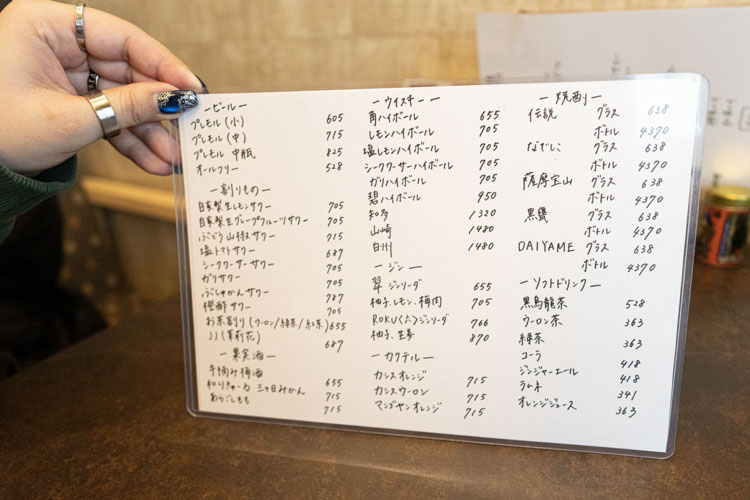 ービールー
プレモル(小) 605
プレモル(中) 715
プレモル 中瓶 825
オールフリー 528
ー割りものー
自家製生レモンサワー 705
自家製生グレープフルーツサワー 705
ぶどう山椒サワー 715
塩トマトサワー 687
シークワーサーサワー 705
ガリサワー 705
ぶしゅかんサワー 787
橙酢サワー 705
お茶割り(ウーロン/緑茶/紅茶) 655
JJ(茉莉花) 687
ー果実酒ー
手摘み梅酒 655
和りきゅーる 三ヶ日みかん 715
あらごしもも 715
ーウイスキーー
角ハイボール 655
レモンハイボール 705
塩レモンハイボール 705
シークワーサーハイボール 705
ガリハイボール 705
碧ハイボール 950
知多 1320
山崎 1480
白州 1480
ージンー
翠ジンソーダ 655
柚子、レモン、梅肉 705
ROKU〈六〉ジンソーダ 766
柚子、生姜 870
ーカクテルー
カシスオレンジ 715
カシスウーロン 715
マンゴヤンオレンジ 715
ー焼酎ー
伝説 グラス 638
ボトル 4370
なでしこ グラス 638
ボトル 4370
薩摩宝山 グラス 638
ボトル 4370
黒甕 グラス 638
ボトル 4370
DAIYAME グラス 638
ボトル 4370
ーソフトドリンクー
黒烏龍茶 528
ウーロン茶 363
緑茶 363
コーラ 418
ジンジャーエール 418
ラムネ 341
オレンジジュース 363